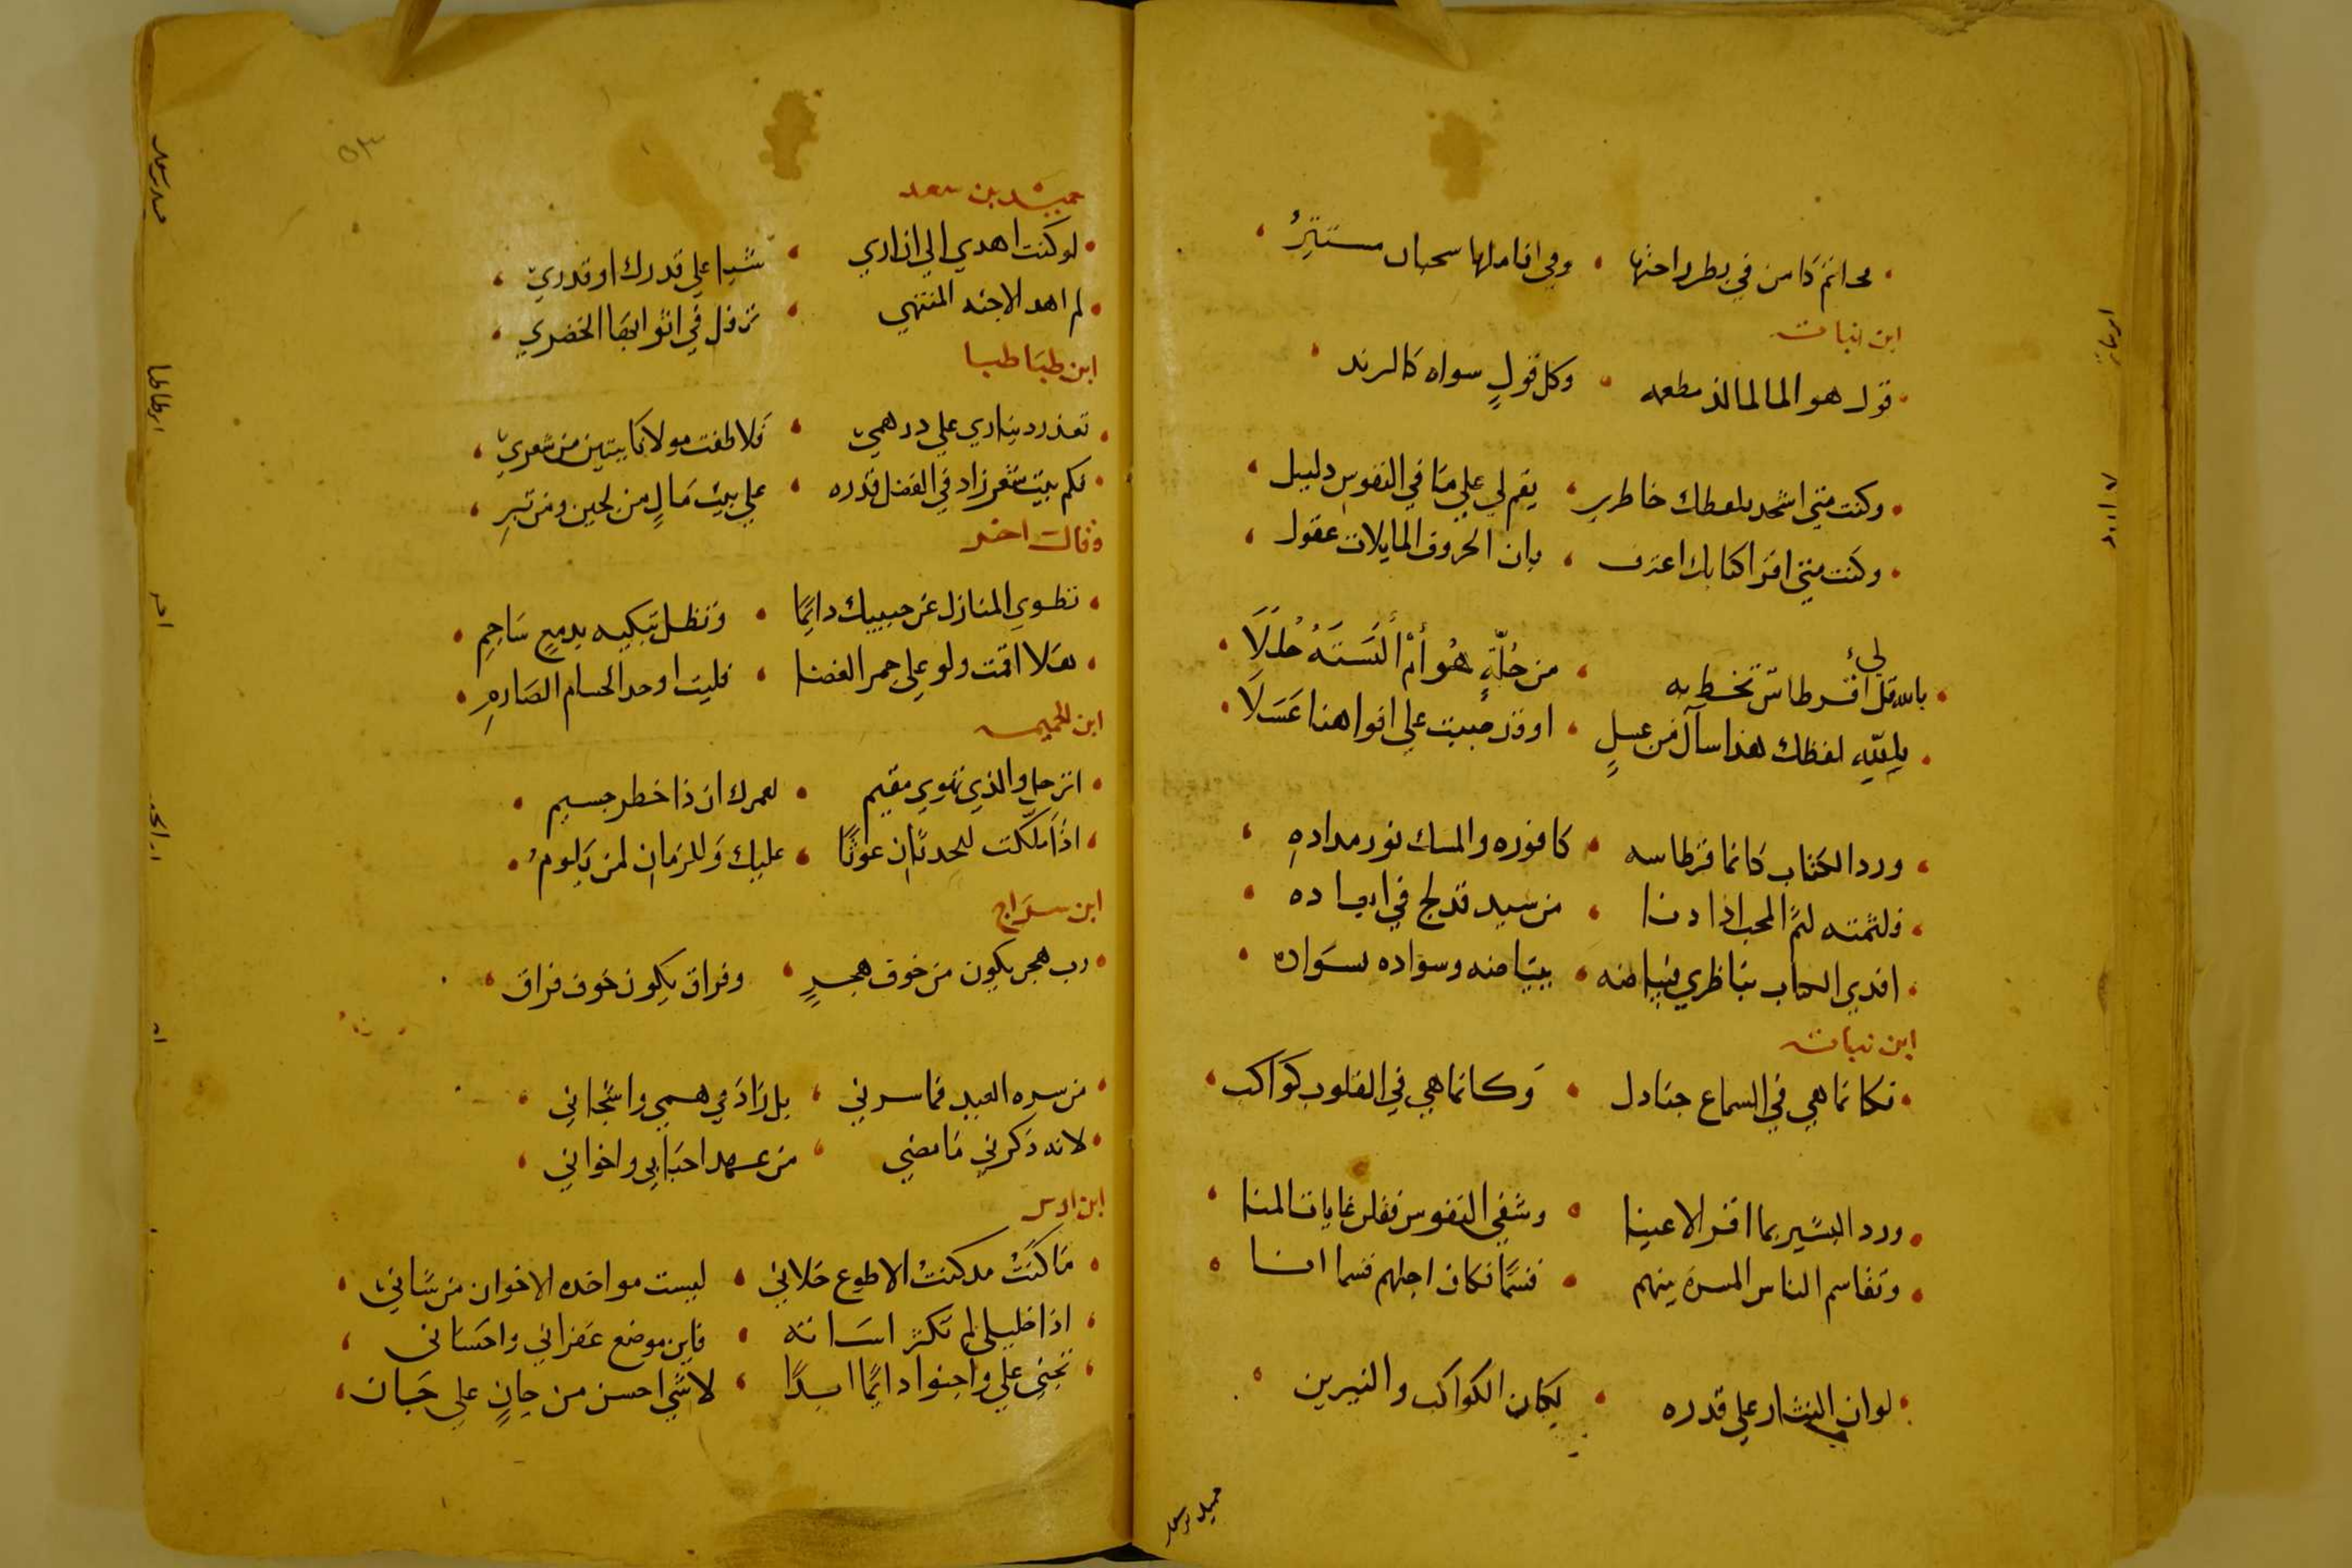 وفي اناملها سحبان مستتر
ابن نباته
قول هو الما لمالذ مطعمه وكل قول سواه كالزبد
وكنت متي اشحد بلفظك خاطري يقم لي علي ما في النفوس دليل
وكنت متي اقرا كتابك اعترف بان الحروف المايلات عقول
لي
بالله قل اقرطاس تخط به من حلة هو أم ألبسته حللا
بالله لفظك هذا سال من عسل او قد صببت علي افواهنا عسلا
ورد الكتاب كانما قرطاسه كافوره والمسك نور مداده
فلثمته لثم المحب اذا دنا من سيد قد لج في ابعاده
افدي الكتاب بناظري فبياضه ببياضه وسواده بسواده
ابن نباته
فكانما هي في السماع جنادل وكانما هي في القلوب كواكب
ورد البشير بما اقر الاعينا وشفي النفوس فنلن غايات المنا
وتقاسم الناس المسرة بينهم قسما فكان اجلهم قسما انا
لوان النثار علي قدره لكان الكواكب والنيرين
حميد بن سعد
٥٣
حميد بن سعد
لو كنت اهدي الي ان اري شيا علي قدرك او قدري
لم اهد الا جنه المنتهي ترفل في اثوابها الخضري
ابن طباطبا
تعذر ديناري علي درهمي فلاطفت مولانا ببيتين من شعري
فكم بيت شعر زاد في الفضل قدره علي بيت مال من لجين ومن تبر
وقال اخر
تطوي المنازل عن حبيبك دايما وتظل تبكيه بدمع ساجم
هلا اقمت ولو علي جمر الغضا قلبت او حد الحسام الصارم
ابن
اترحل والذي تهوي مقيم لعمرك ان ذا خطر جسيم
اذا ما كنت للحدثان عونا عليك وللزمان لمن تلوم
ابن سراج
رب هجر يكون من خوف هجر وفراق يكون خوف فراق
من سره العيد فما سرني بل زاد في همي واشجاني
لانه ذكرني ما مضي من عهد احبابي واخواني
ابن
ما كنت مد كنت الا طوع خلاني ليست مواخده الاخوان من شاني
اذا خليلي لم تكثر اساته فاين موضع غفراني واحساني
تجني علي واحنوا دايما ابدا لا شي احسن من جان علي جان